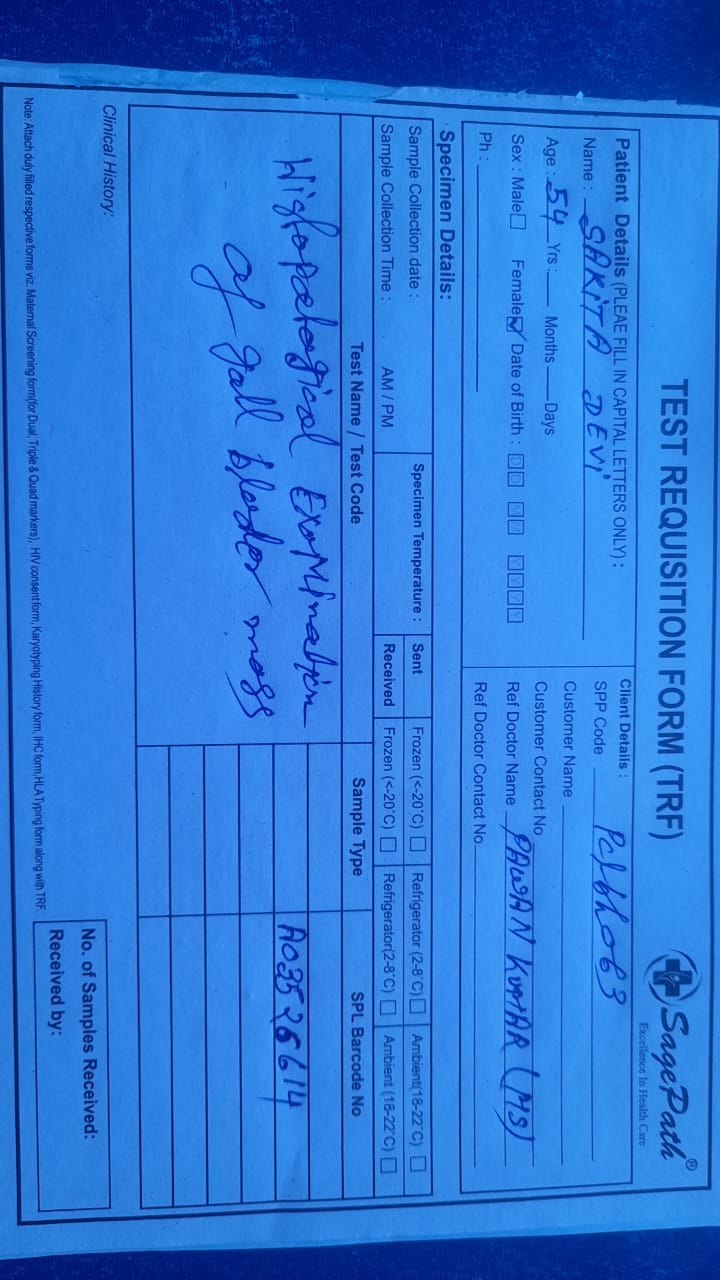 TEST REQUISITION FORM (TRF)
SagePath®
Excellence In Health Care
Patient Details (PLEAE FILL IN CAPITAL LETTERS ONLY) :
Name : SAKITA DEVI
Age : 54 Yrs : Months Days
Sex : Male Female Date of Birth : D D M M Y Y Y Y
Ph :
Client Details :
SPP Code
Customer Name
Customer Contact No
Ref Doctor Name PAWAN KUMAR (MS)
Ref Doctor Contact No
Specimen Details:
Sample Collection date :
Sample Collection Time : AM / PM
Specimen Temperature :
Sent Frozen (<-20°C) Refrigerator (2-8°C) Ambient(18-22°C)
Received Frozen (<-20°C) Refrigerator(2-8°C) Ambient (18-22°C)
Test Name / Test Code Sample Type SPL Barcode No
Histopathological Examination A035256614
of gall bladder mass
Clinical History:
No. of Samples Received:
Received by:
Note: Attach duly filled respective forms viz. Maternal Screening form(for Dual, Triple & Quad markers), HIV consent form, Karyotyping History form, IHC form,HLA Typing form along with TRF.